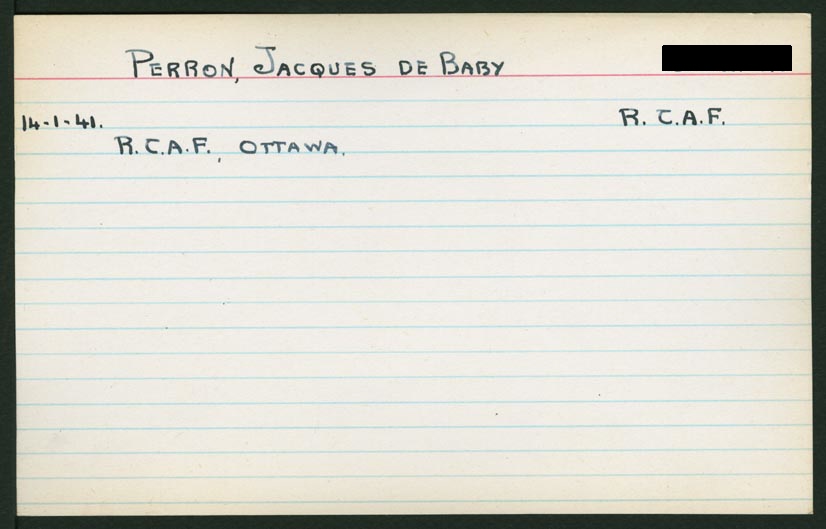 PERRON, JACQUES DE BABY
14-1-41. R. C.A.F.
R.C.A.F., OTTAWA.